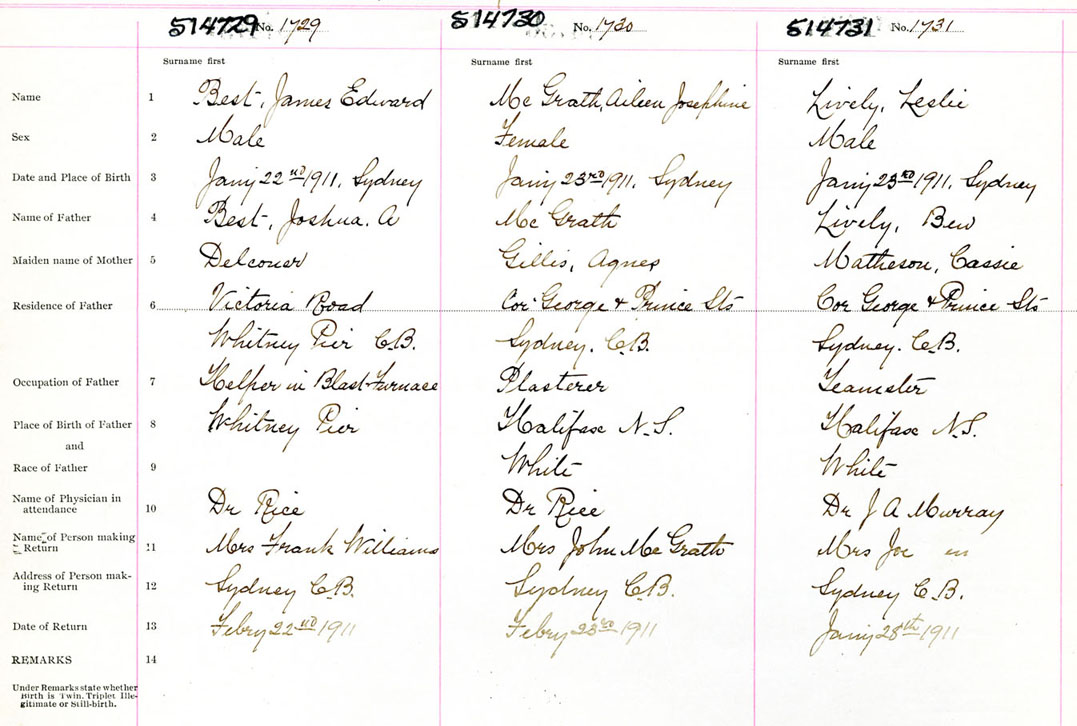 514729 No. 1729 514730 No. 1730 514731 No. 1731
Surname first Surname first Surname first
Name 1 Best, James Edward Mc Grath, Aileen Josephine Lively, Leslie
Sex 2 Male Female Male
Date and Place of Birth 3 Jany 22nd 1911, Sydney Jany 23rd 1911, Sydney Jany 23rd 1911, Sydney
Name of Father 4 Best, Joshua. A Mc Grath Lively, Ben
Maiden name of Mother 5 Gillis, Agnes Matheson, Cassie
Residence of Father 6 Victoria Road Cor George & Prince Sts Cor George & Prince Sts
Whitney Pier C.B. Sydney. C.B. Sydney. C.B.
Occupation of Father 7 Helper in Blast Furnace Plasterer Teamster
Place of Birth of Father 8 Whitney Pier Halifax N.S. Halifax N.S.
and
Race of Father 9 White White
Name of Physician in
attendance 10 Dr Rice Dr Rice Dr J A Murray
Name of Person making
Return 11 Mrs Frank Williams Mrs John Mc Grath Mrs Joe
Address of Person mak-
ing Return 12 Sydney C.B. Sydney C.B. Sydney C.B.
Date of Return 13 Febry 22nd 1911 Febry 23rd 1911 Jany 28th 1911
REMARKS 14
Under Remarks state whether
Birth is Twin, Triplet Ille-
gitimate or Still-birth.